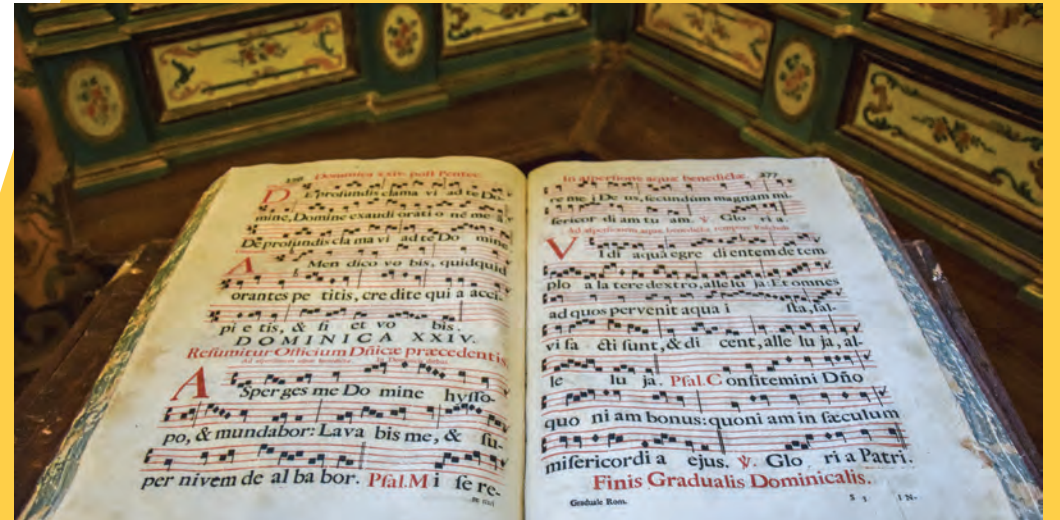 Dominica xxiv. post Pentec.
DE profundis clama vi ad te Do-
mine, Domine exaudi orati o nē me ā.
De profundis cla ma vi ad te Do mine
A Men dico vo bis, quidquid
orantes pe titis, cre dite qui a acci-
pi e tis, & fi et vo bis.
DOMINICA XXIV.
Resumitur Officium Dñicæ præcedentis
A Sperges me Do mine hysso-
po, & mundabor: Lava bis me, & su-
per nivem de al ba bor. Psal. M i se re-
In aspersione aquæ benedictæ. 277
re me i De us, secundùm magnam mi-
sericor di am tu am. ℣. Glo ri a.
Ad aspersionem aquæ benedictæ tempore Paschali
V Idi aquā egre di entem de tem-
plo a la tere dextro, alle lu ja: Et omnes
ad quos pervenit aqua i sta, sal-
vi fa cti sunt, & di cent, alle lu ja, al-
le lu ja. Psal. C onfitemini Dño
quo ni am bonus: quoni am in sæculum
misericordi a ejus. ℣. Glo ri a Patri.
Finis Gradualis Dominicalis.
Graduale Rom. S 3 IN-